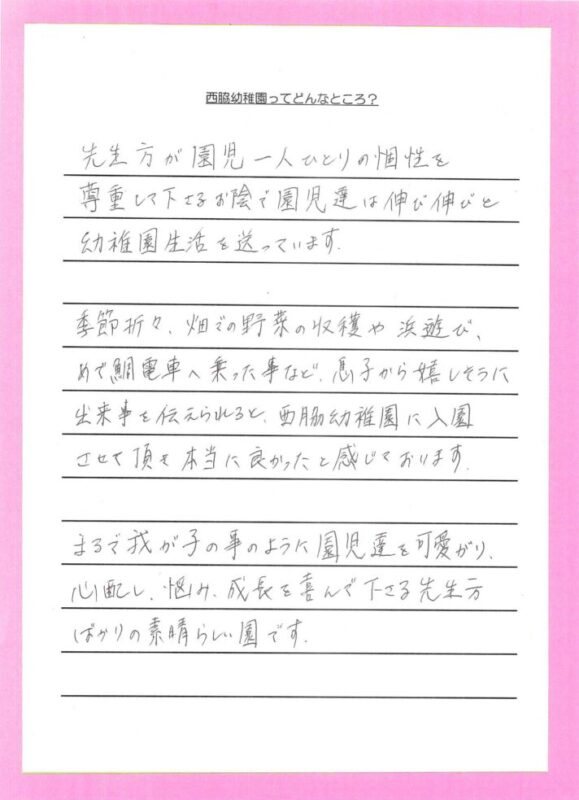 西脇幼稚園ってどんなところ？
先生方が園児一人ひとりの個性を
尊重して下さるお陰で園児達は伸び伸びと
幼稚園生活を送っています.
季節折々、畑での野菜の収穫や浜遊び、
めで鯛電車へ乗った事など、息子から嬉しそうに
出来事を伝えられると、西脇幼稚園に入園
させて頂き本当に良かったと感じております.
まるで我が子の事のように園児達を可愛がり、
心配し、悩み、成長を喜んで下さる先生方
ばかりの素晴らしい園です.